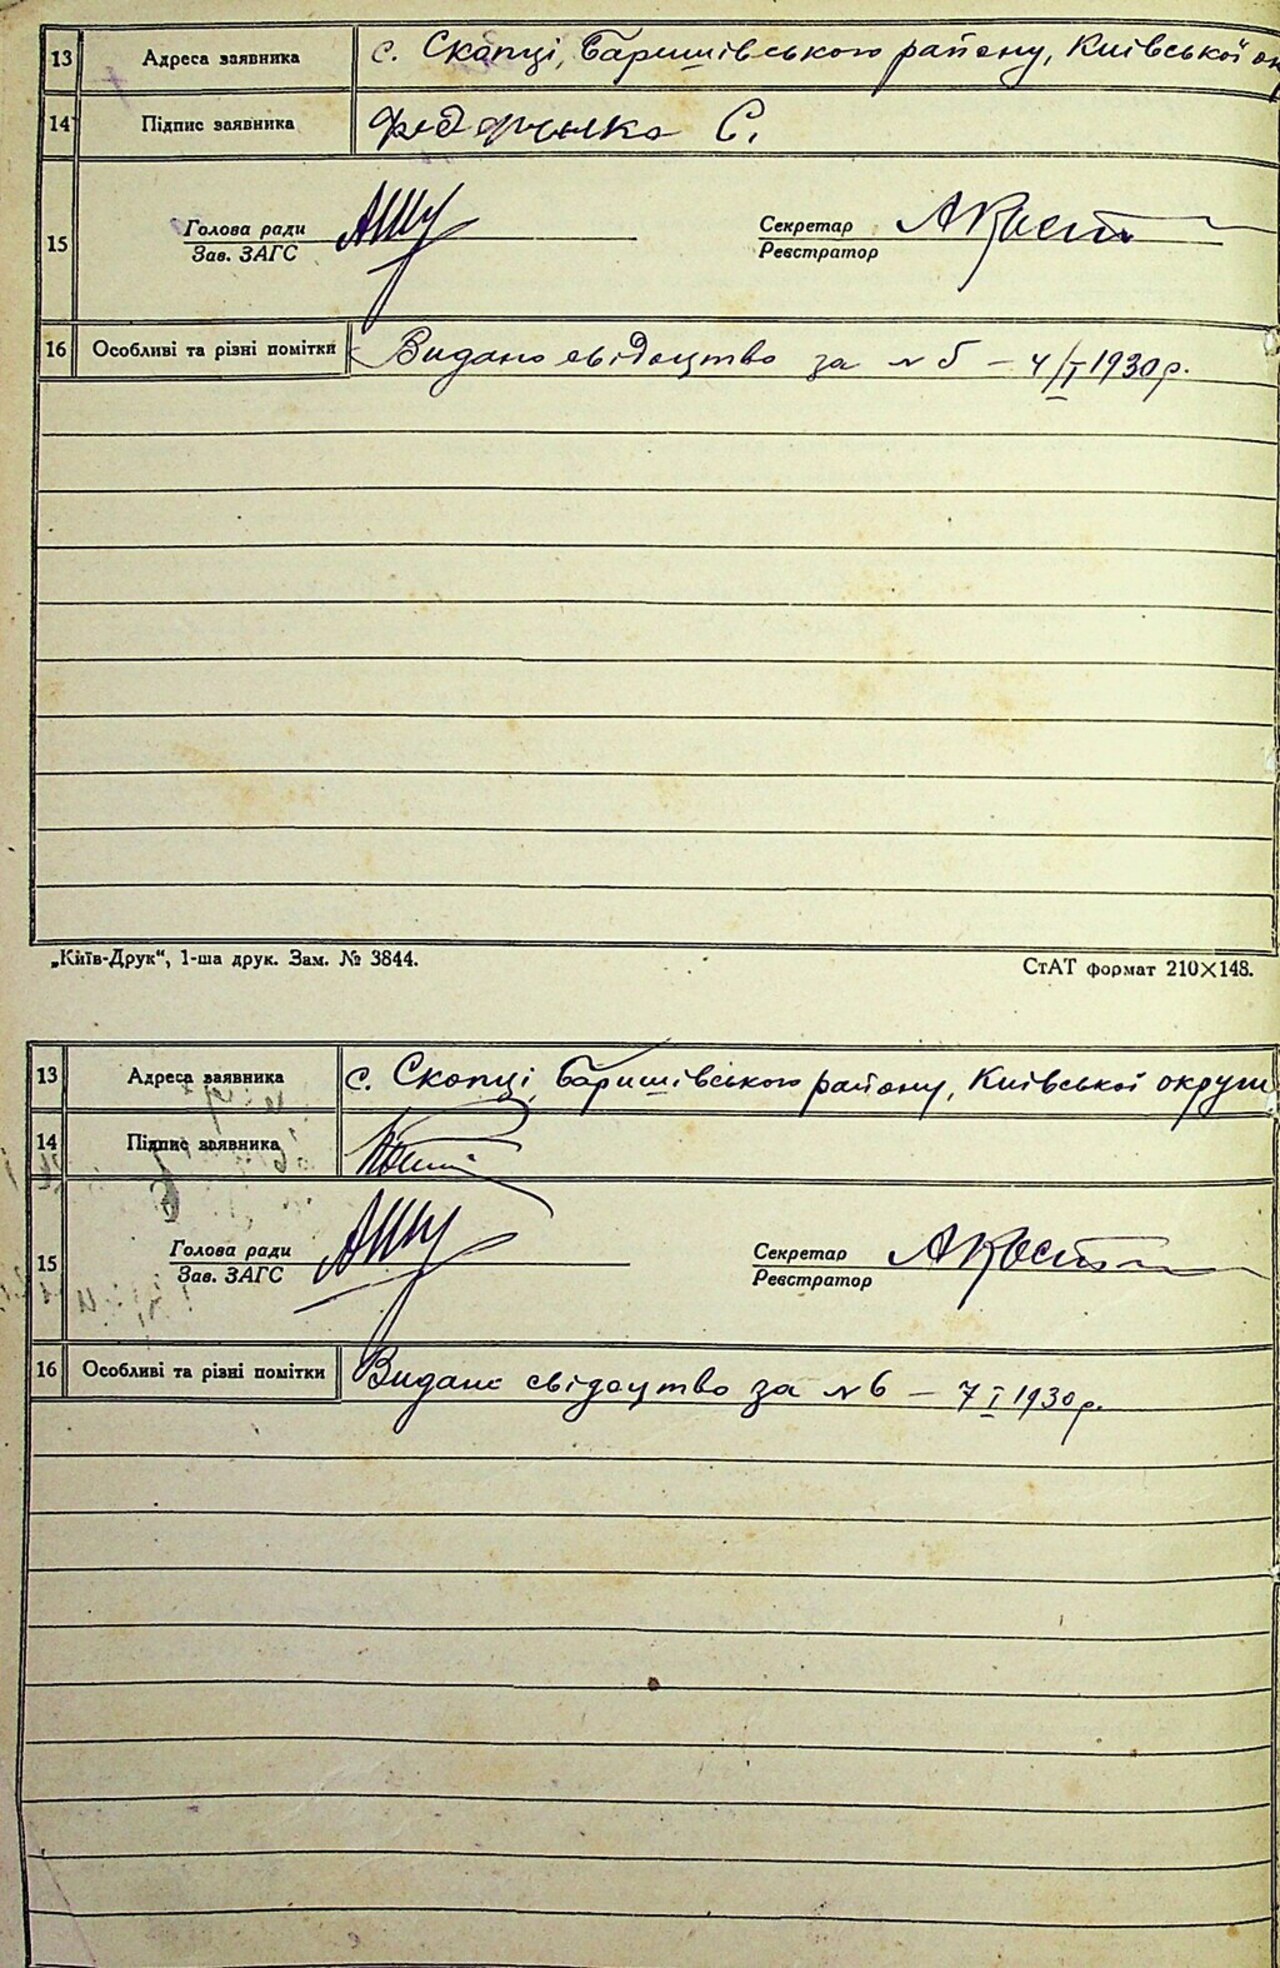 13 Адреса заявника с. Скопці, Баришівського району, Київської ок
14 Підпис заявника Федорченко С.
15 Голова ради Секретар
Зав. ЗАГС Реєстратор
16 Особливі та різні помітки Видано свідоцтво за № 5 – 4/I 1930 р.
„Київ-Друк“, 1-ша друк. Зам. № 3844. СтАТ формат 210×148.
13 Адреса заявника с. Скопці, Баришівського району, Київської округи
14 Підпис заявника
15 Голова ради Секретар
Зав. ЗАГС Реєстратор
16 Особливі та різні помітки Видано свідоцтво за № 6 – 7 I 1930 р.